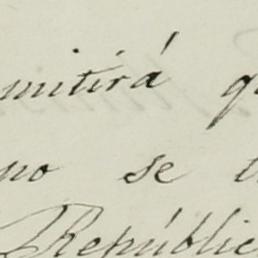 mitirá q
no se t
Repúblic